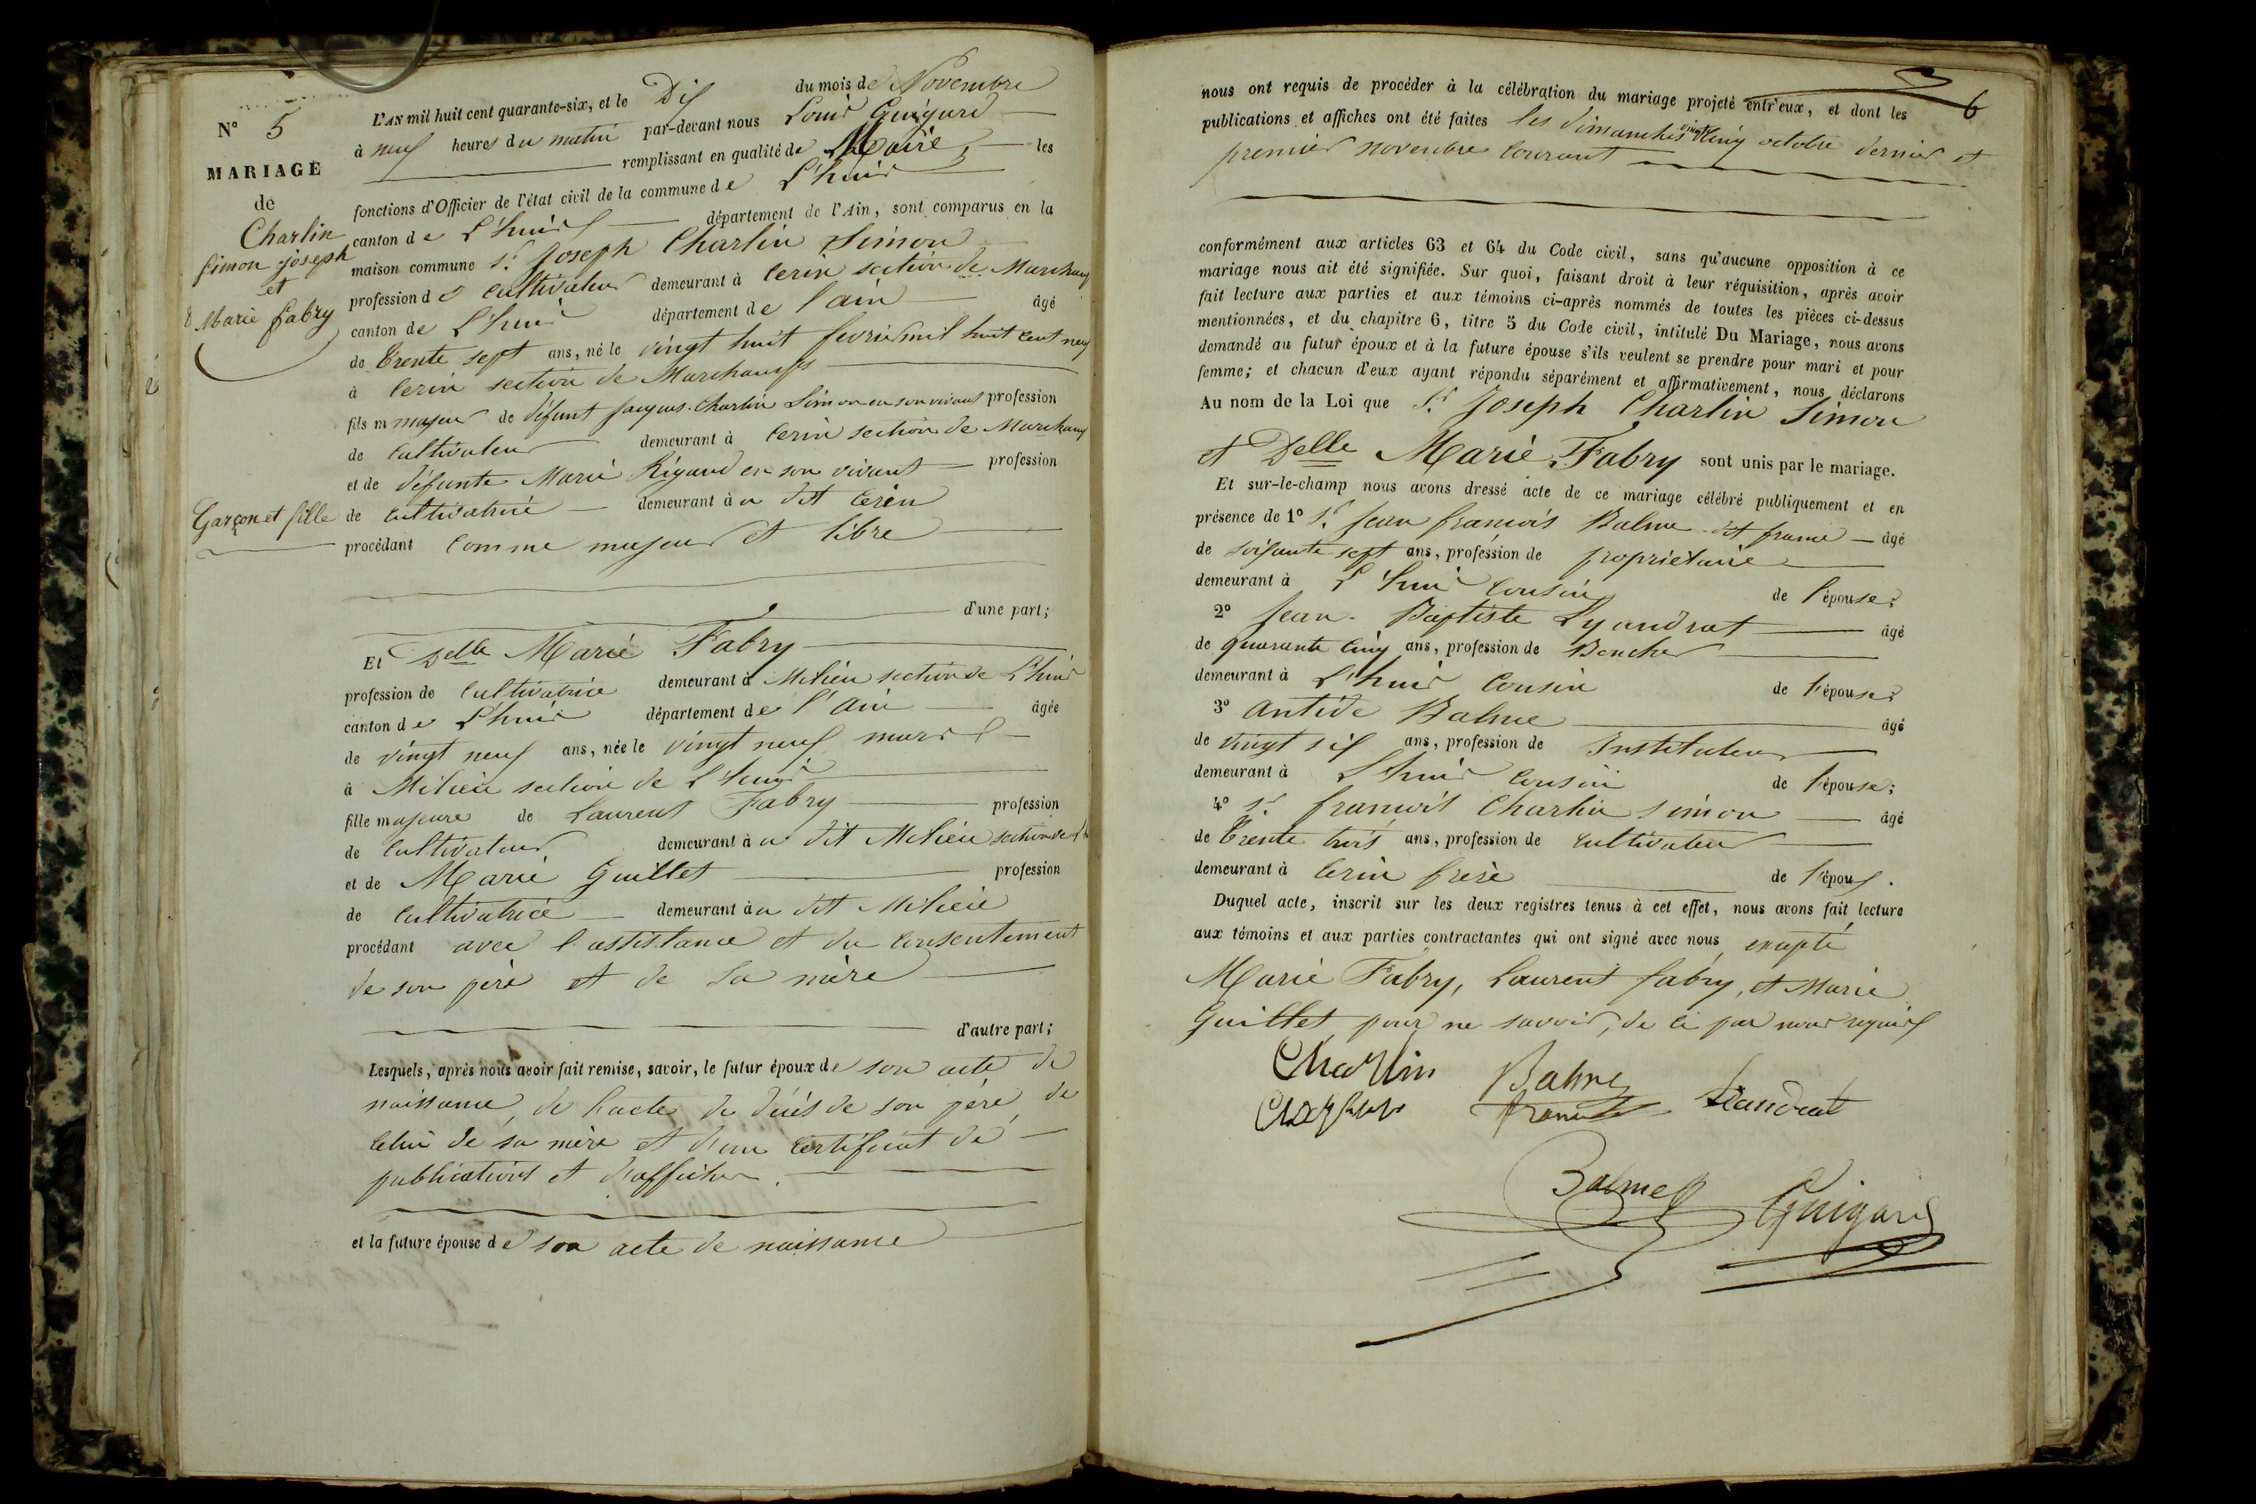 N° 5
MARIAGE
de
Charlin
Simon joseph
et
Marie fabry
Garçon et fille
L'AN mil huit cent quarante-six, et le Dix du mois de Novembre
à neuf heures du matin par-devant nous Louis Guigard
remplissant en qualité de Maire, les
fonctions d'Officier de l'état civil de la commune de L'huis
canton de L'huis département de l'Ain, sont comparus en la
maison commune Sr. Joseph Charlin Simon
profession de cultivateur demeurant à Cerin section de Marchamp
canton de L'huis département de l'ain âgé
de trente sept ans, né le vingt huit fevrier mil huit cent neuf
à Cerin section de Marchamps
fils majeur de défunt Jacques Charlin Simon en son vivant profession
de cultivateur demeurant à Cerin section de Marchamp
et de défunte Marie Rigaud en son vivant profession
de cultivatrice demeurant à u dit Cerin
procédant comme majeur et libre
d'une part;
Et Delle Marie Fabry
profession de cultivatrice demeurant à Milieu section de L'huis
canton de L'huis département de l'Ain âgée
de vingt neuf ans, née le vingt neuf mars
à Milieu section de L'huis
fille majeure de Laurent Fabry profession
de cultivateur demeurant à u dit Milieu section de
et de Marie Guillet profession
de cultivatrice demeurant à u dit Milieu
procédant avec l'assistance et du consentement
de son père et de sa mère
d'autre part;
Lesquels, après nous avoir fait remise, savoir, le futur époux de son acte de
naissance, de l'acte de décés de son père, de
celui de sa mère et d'un certificat de
publications et d'affiches.
et la future épouse de son acte de naissance
6
nous ont requis de procéder à la célébration du mariage projeté entr'eux, et dont les
publications et affiches ont été faites les dimanches vingt cinq octobre dernier et
premier novembre courant
conformément aux articles 63 et 64 du Code civil, sans qu'aucune opposition à ce
mariage nous ait été signifiée. Sur quoi, faisant droit à leur réquisition, après avoir
fait lecture aux parties et aux témoins ci-après nommés de toutes les pièces ci-dessus
mentionnées, et du chapitre 6, titre 5 du Code civil, intitulé Du Mariage, nous avons
demandé au futur époux et à la future épouse s'ils veulent se prendre pour mari et pour
femme; et chacun d'eux ayant répondu séparément et affirmativement, nous déclarons
Au nom de la Loi que Sr Joseph Charlin Simon
et Delle Marie Fabry sont unis par le mariage.
Et sur-le-champ nous avons dressé acte de ce mariage célébré publiquement et en
présence de 1° Sr. Jean françois Balme dit âgé
de soixante sept ans, profession de propriétaire
demeurant à L'huis cousin de l'épouse;
2° Jean-Baptiste Lyandrat âgé
de quarante cinq ans, profession de Boucher
demeurant à L'huis cousin de l'épouse;
3° Antide Balme âgé
de vingt six ans, profession de Instituteur
demeurant à L'huis cousin de l'épouse;
4° Sr. françois Charlin simon âgé
de trente trois ans, profession de cultivateur
demeurant à Cerin frère de l'époux.
Duquel acte, inscrit sur les deux registres tenus à cet effet, nous avons fait lecture
aux témoins et aux parties contractantes qui ont signé avec nous, excepté
Marie Fabry, Laurent fabry, et Marie
Guillet pour ne savoir, de ce par nous requis
Charlin Balme Liandrat
Balme Guigard